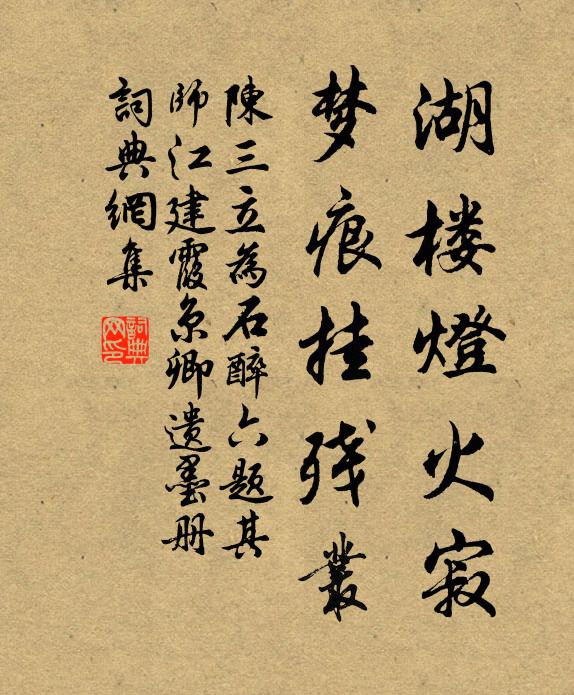 湖楼燈火寂
梦痕挂残叢
陳三立為石醉六題其
師江建霞京卿遺墨册
詞典網集
詞典网印